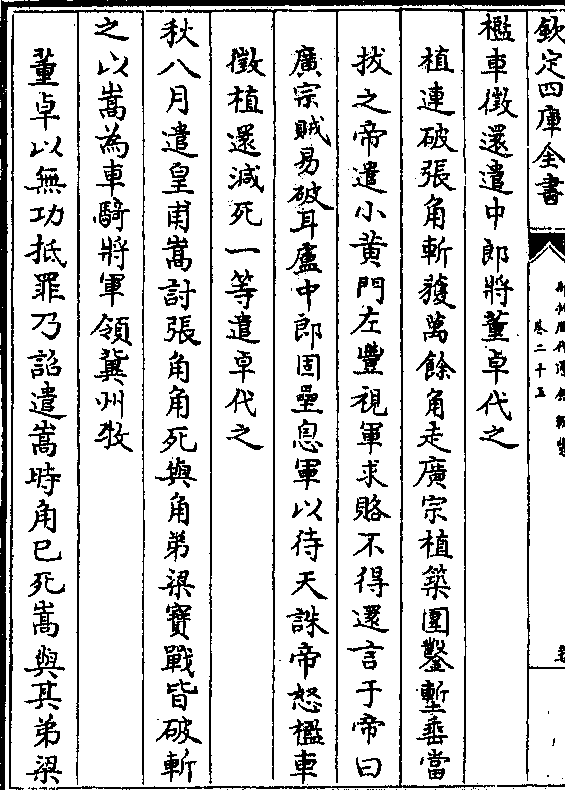 欽定四庫全書
卷二十五
檻車徵還遣中郎將董卓代之
植連破張角斬獲萬餘角走廣宗植築圍鑿塹垂當
拔之帝遣小黃門左豐視軍求賂不得還言于帝曰
廣宗賊易破耳盧中郎固壘息軍以待天誅帝怒檻車
徵植還減死一等遣卓代之
秋八月遣皇甫嵩討張角角死與角弟梁寶戰皆破斬
之以嵩為車騎將軍領冀州牧
董卓以無功抵罪乃詔遣嵩時角已死嵩與其弟梁